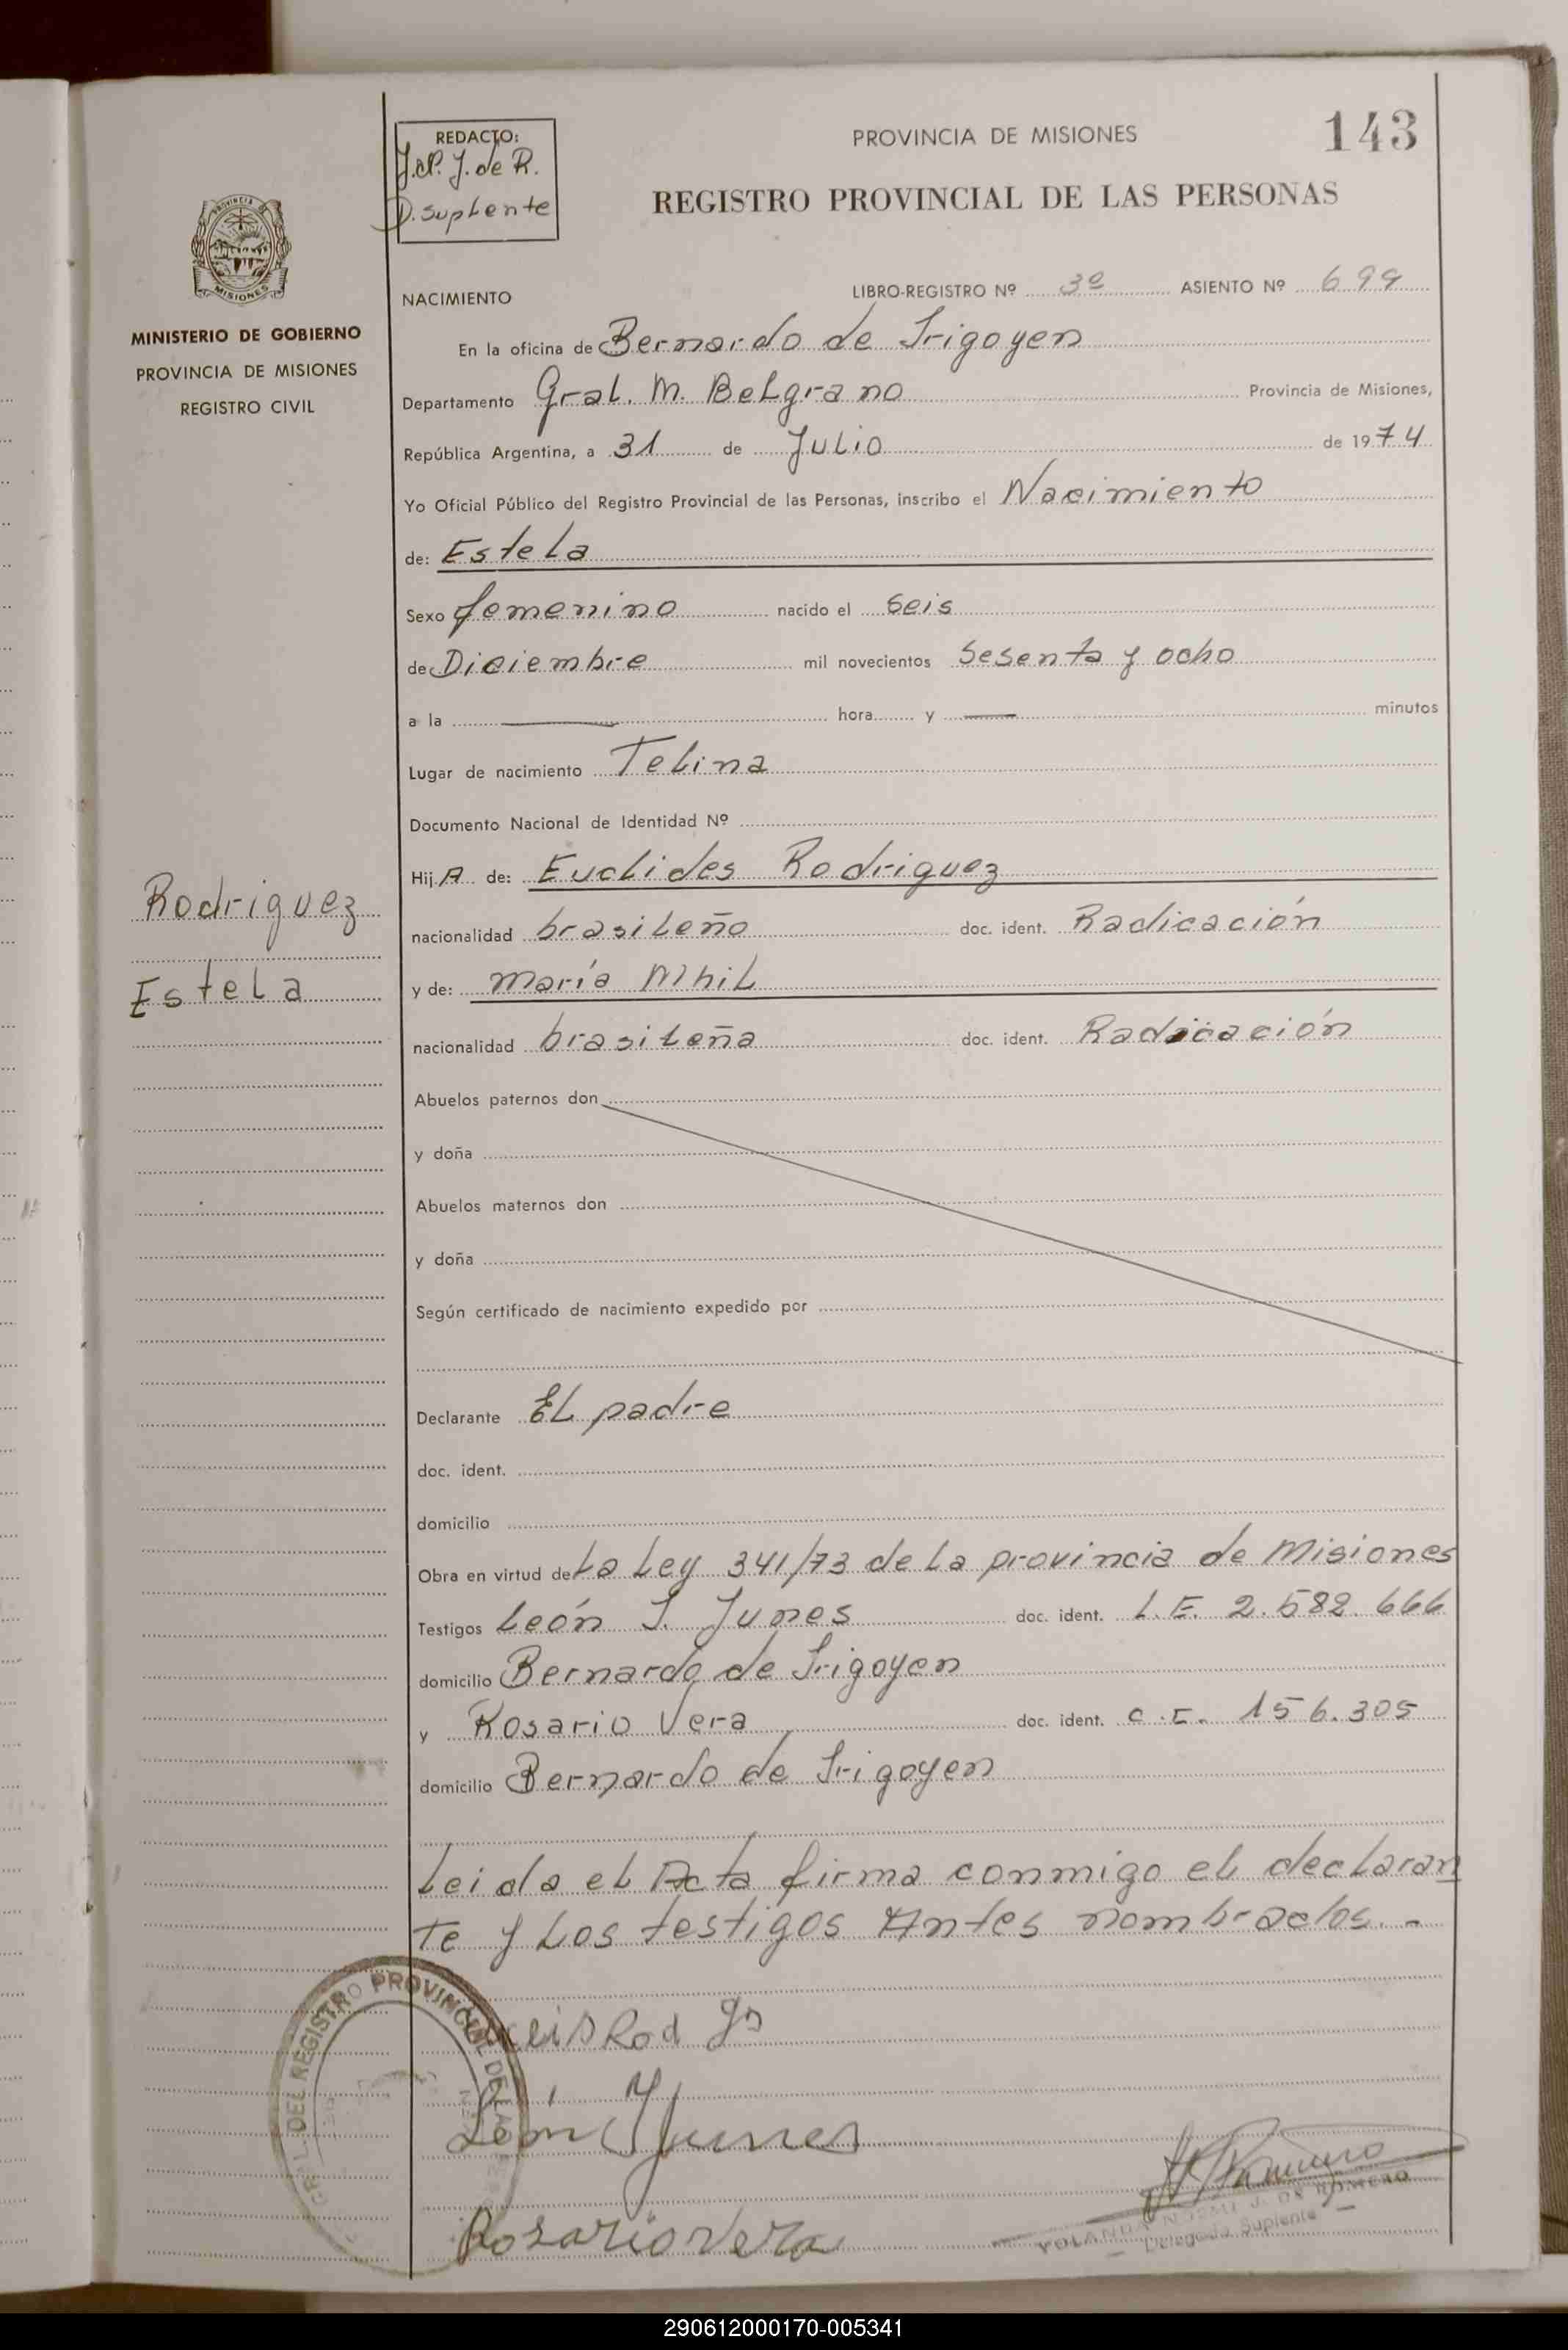 143
PROVINCIA DE MISIONES
REGISTRO PROVINCIAL DE LAS PERSONAS
REDACTO:
J. de R.
D. suplente
PROVINCIA DE
MISIONES
MINISTERIO DE GOBIERNO
PROVINCIA DE MISIONES
REGISTRO CIVIL
NACIMIENTO LIBRO-REGISTRO Nº 3º ASIENTO Nº 699
En la oficina de Bernardo de Irigoyen
Departamento Gral. M. Belgrano Provincia de Misiones,
República Argentina, a 31 de Julio de 1974
Yo Oficial Público del Registro Provincial de las Personas, inscribo el Nacimiento
de: Estela
Sexo femenino nacido el seis
de Diciembre mil novecientos sesenta y ocho
a la — hora y — minutos
Lugar de nacimiento Telina
Documento Nacional de Identidad Nº
Hij A de: Euclides Rodriguez
nacionalidad brasileño doc. ident. Radicación
y de: maría Mhil
nacionalidad brasileña doc. ident. Radicación
Rodriguez
Estela
Abuelos paternos don
y doña
Abuelos maternos don
y doña
Según certificado de nacimiento expedido por
Declarante El padre
doc. ident.
domicilio
Obra en virtud de La Ley 341/73 de la provincia de Misiones
Testigos León J. Junes doc. ident. L.E. 2.582.666
domicilio Bernardo de Irigoyen
y Rosario Vera doc. ident. C.I. 156.305
domicilio Bernardo de Irigoyen
Leida el Acta firma conmigo el declaran
te y los testigos Antes nombrados. -
DEL REGISTRO PROVINCIAL DE LAS
León Junes
Rosario Vera
YOLANDA NOEMI J. DE ROMERO
— Delegada Suplente —
290612000170-005341